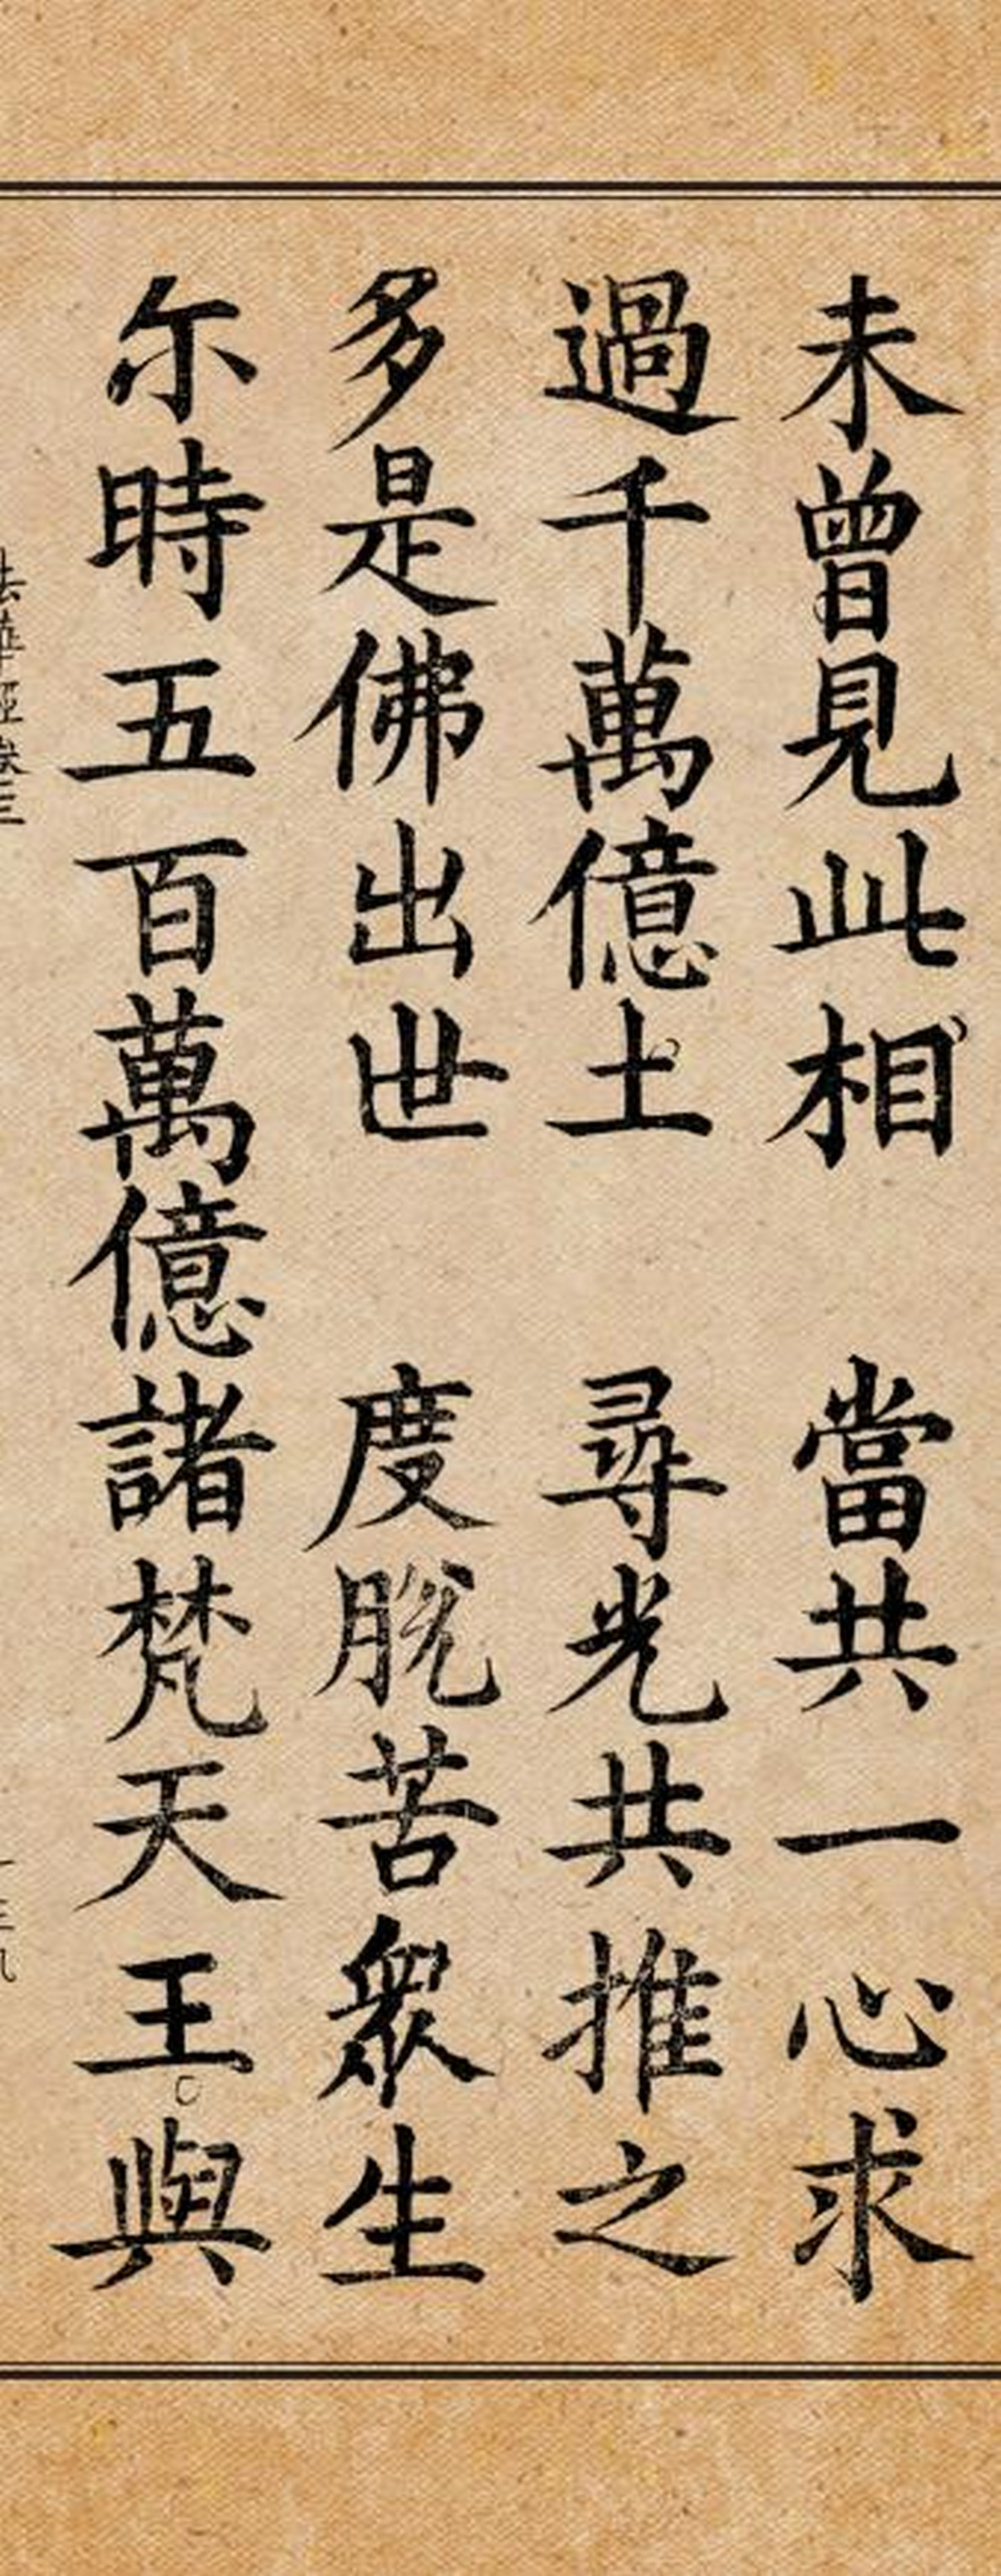 未曾見此相　當共一心求
過千萬億土　尋光共推之
多是佛出世　度脫苦衆生
尒時五百萬億諸梵天王與
法華經卷三